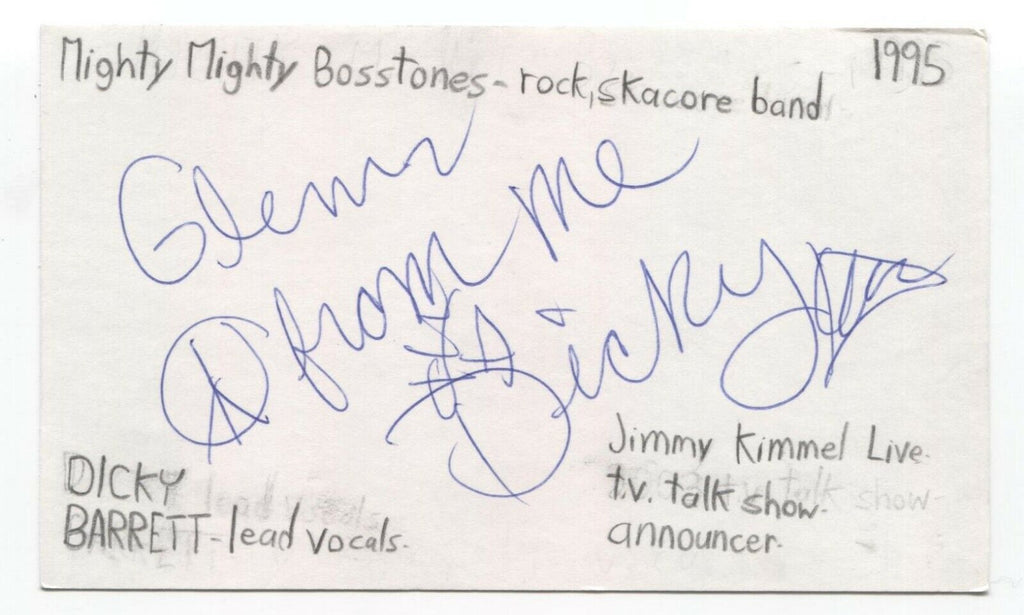 Mighty Mighty Bosstones - rock, skacore band
1995
Glenn
from me
Dicky
DICKY
BARRETT - lead vocals.
Jimmy Kimmel Live.
t.v. talk show.
announcer.